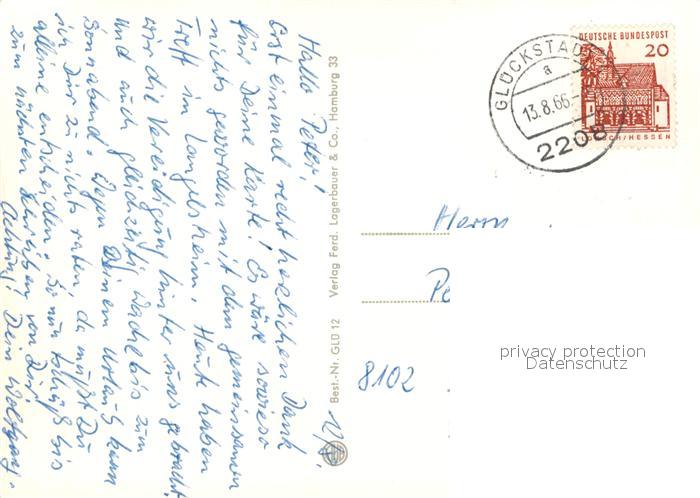 Hallo Peter!
Erst einmal recht herzlichen Dank
für Deine Karte! Es wäre sowieso
nichts geworden mit dem gemeinsamen
Treff in Langelsheim. Heute haben
wir die Vereidigung hinter uns gebracht
und auch gleichzeitig Wache bis zum
Sonnabend. Wegen Deinem Urlaub kann
ich Dir zu nichts raten, da mußt Du
alleine entscheiden. So nun Schluß bis
zum nächsten Schreiben von Dir!
Achtung! Dein Wolfgang.
Best.-Nr. GLÜ 12 Verlag Ferd. Lagerbauer & Co., Hamburg 33
GLÜCKSTADT
a
13.8.66.-
2208
DEUTSCHE BUNDESPOST
20
LORSCH/HESSEN
Herrn
Pe
8102
privacy protection
Datenschutz